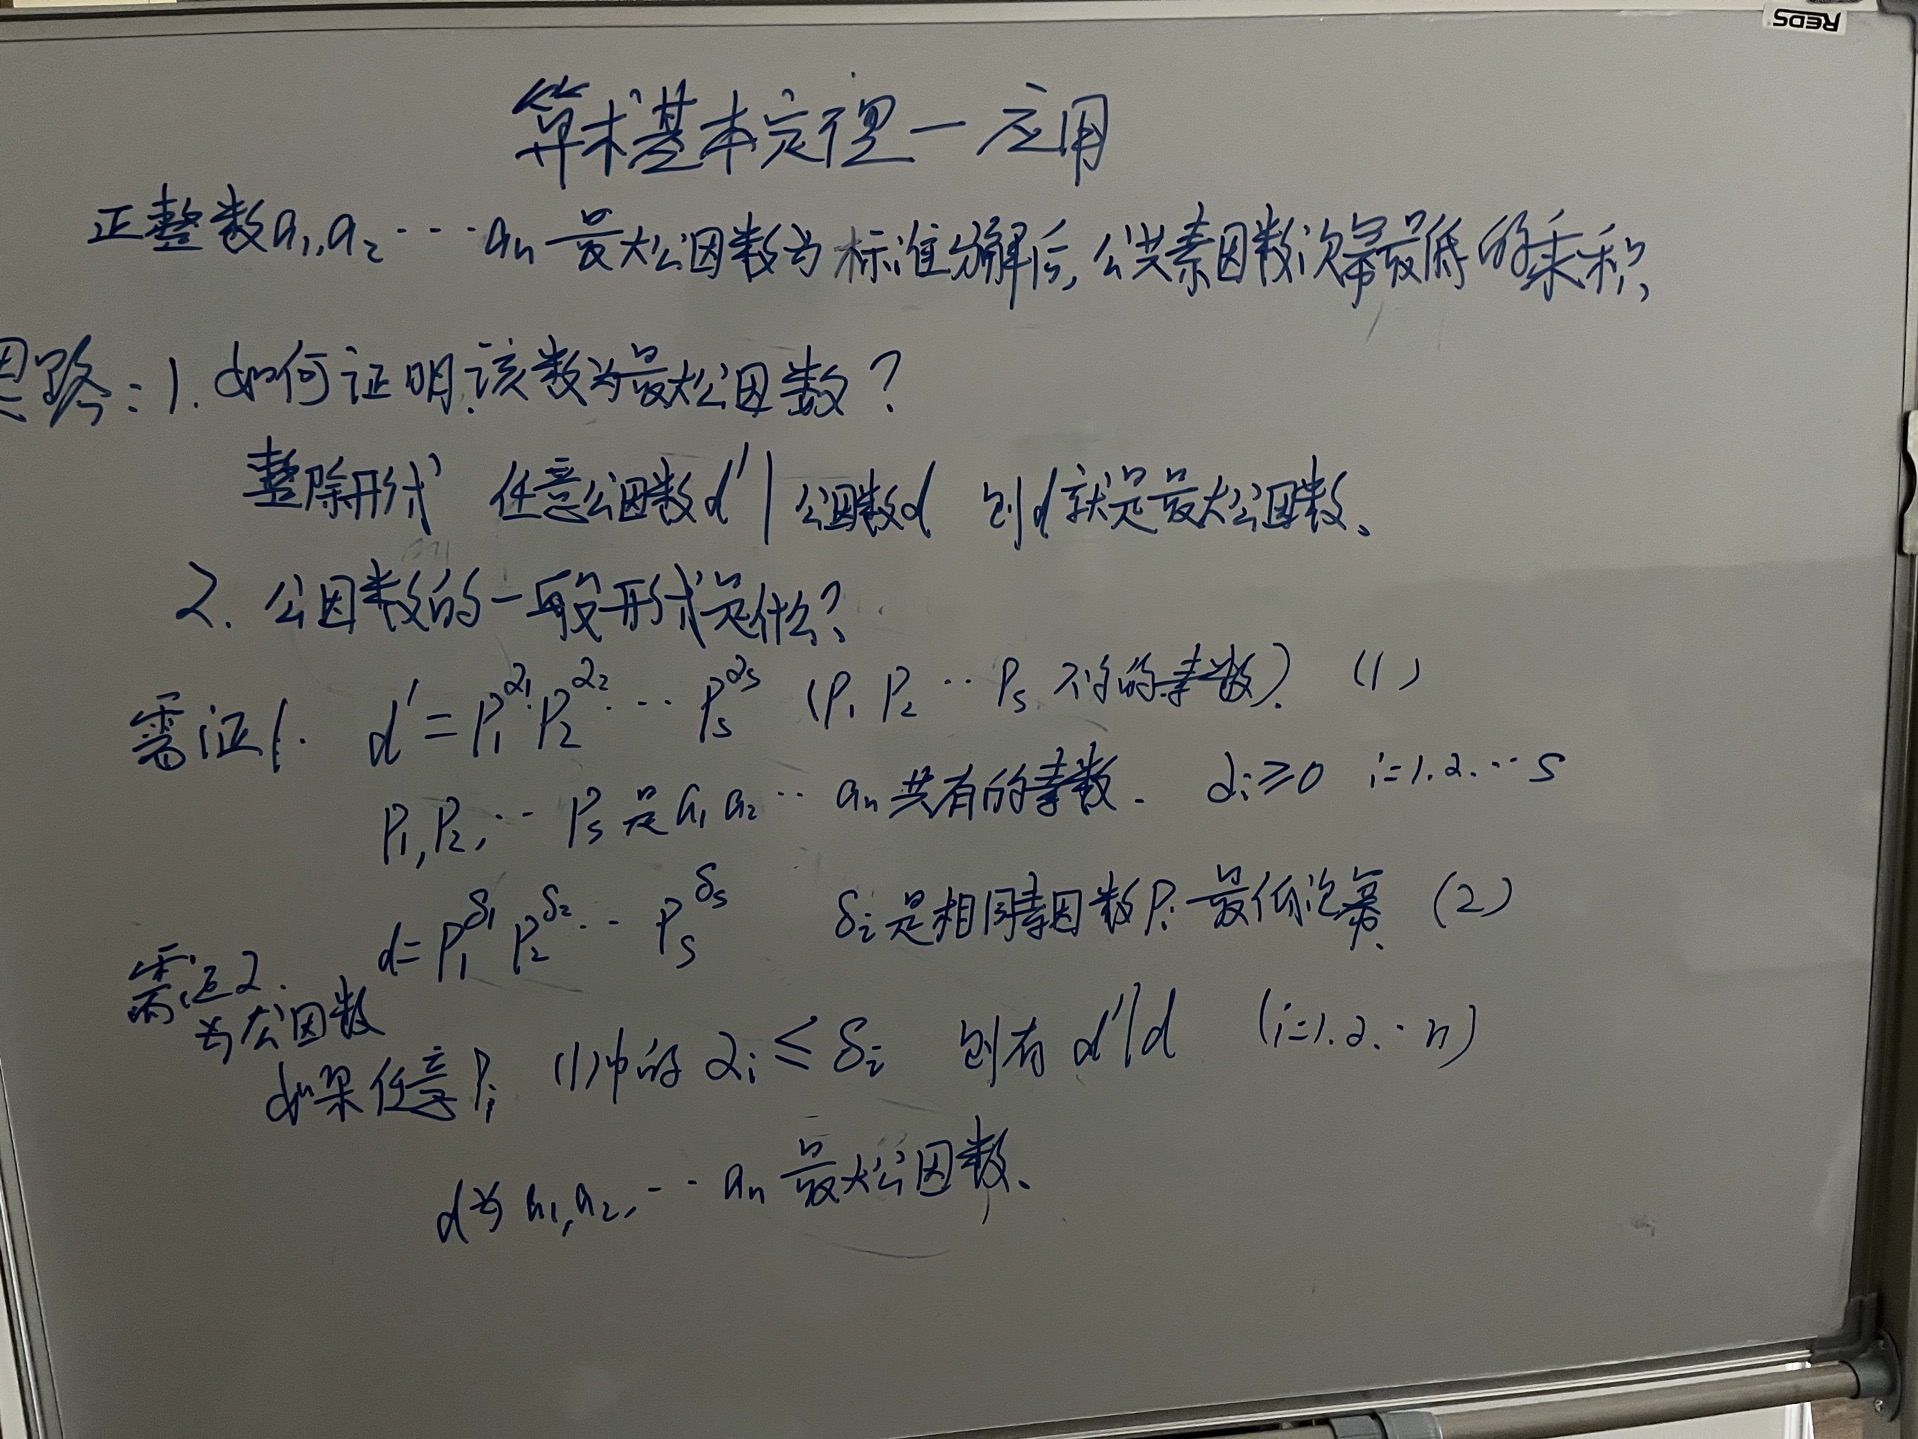 REDS
算术基本定理一应用
正整数a₁,a₂···aₙ最大公因数为标准分解后,公共素因数次幂最低的乘积、
思路:1.如何证明.该数为最大公因数?
整除形式 任意公因数d'|公因数d 则d就是最大公因数、
2.公因数的一般形式是什么?
需证1. d'=P₁^α₁P₂^α₂···Pₛ^αₛ (P₁ P₂···Pₛ 不同的素数). (1)
P₁,P₂,··Pₛ是a₁ a₂··aₙ共有的素数. αᵢ≥0 i=1.2.··s
d=P₁^δ₁P₂^δ₂··Pₛ^δₛ δᵢ是相同素因数Pᵢ最低次幂、(2)
需证2.
为公因数
如果任意Pᵢ (1)中的αᵢ≤δᵢ 则有d'|d (i=1.2.··n)
d为a₁,a₂,··aₙ最大公因数、